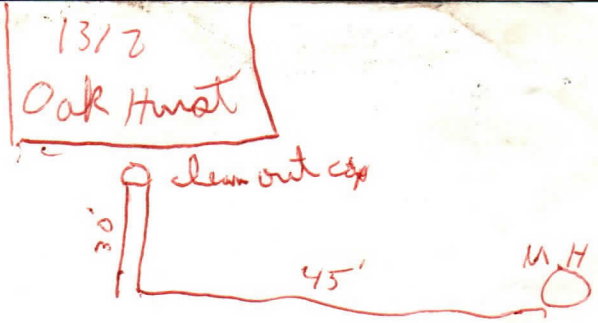 1312
Oak Hurst
clean out cap
30'
45'
M H